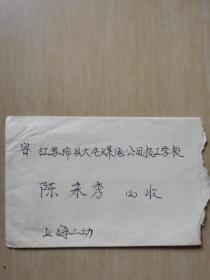 寄 江苏沛县大屯煤电公司技工学校
陈来秀 同收
上海二幼